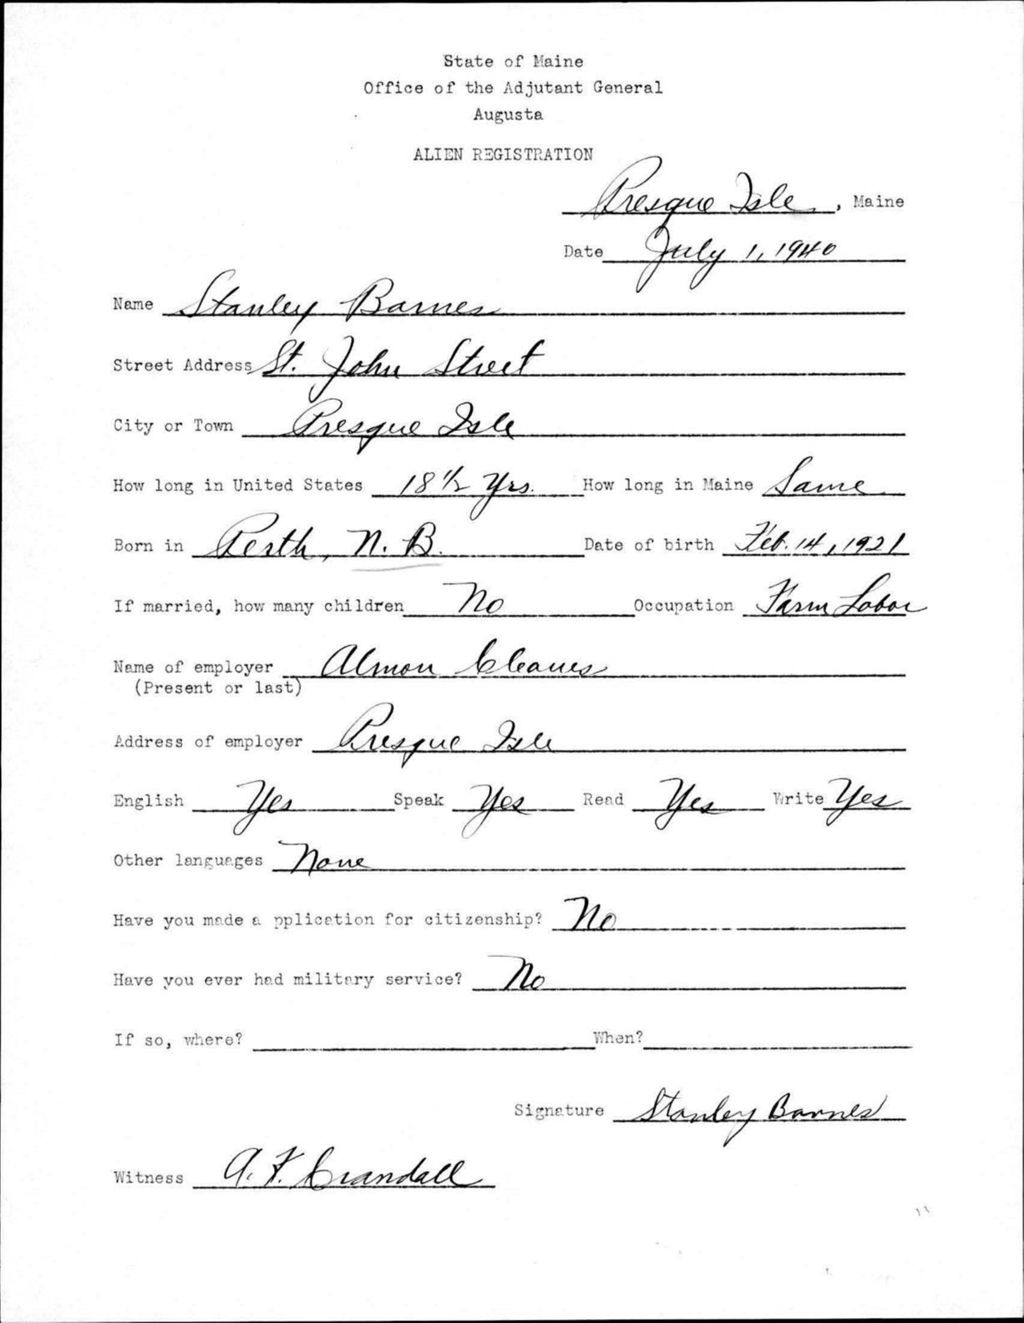 State of Maine
Office of the Adjutant General
Augusta
ALIEN REGISTRATION
Presque Isle, Maine
Date July 1, 1940
Name Stanley Barnes
Street Address St. John Street
City or Town Presque Isle
How long in United States 18 1/2 Yrs. How long in Maine Same
Born in Perth, N. B. Date of birth Feb. 14, 1921
If married, how many children No Occupation Farm Labor
Name of employer Almon Cleaves
(Present or last)
Address of employer Presque Isle
English Yes Speak Yes Read Yes Write Yes
Other languages None
Have you made a pplication for citizenship? No
Have you ever had military service? No
If so, where? When?
Signature Stanley Barnes
Witness A. F. Crandall